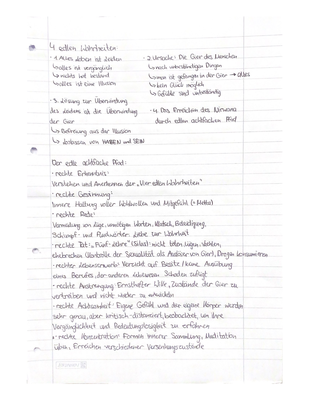 4 edlen Wahrheiten
· 1. Alles Leben ist Leiden
↳ alles ist vergänglich
↳ nichts hat Bestand
↳ alles ist eine Illusion
· 2. Ursache: Die Gier des Menschen
↳ nach unbeständigen Dingen
↳ man ist gefangen in der Gier → alles
↳ kein Glück möglich
↳ Gefühle sind unbeständig
· 3. Lösung zur Überwindung
des Leidens ist die Überwindung
der Gier
↳ Befreiung aus der Illusion
↳ loslassen von HABEN und SEIN
· 4. Das Erreichen des Nirwana
durch edlen achtfachen Pfad
Der edle achtfache Pfad:
· rechte Erkenntnis:
Verstehen und Anerkennen der „Vier edlen Wahrheiten"
· rechte Gesinnung:
Innere Haltung voller Wohlwollen und Mitgefühl (+ Metta)
· rechte Rede:
Vermeidung von Lüge, unnötigen Worten, Klatsch, Beleidigung,
Schimpf- und Fluchwörter, Liebe zur Wahrheit
· rechte Tat: „Fünf (Silas): nicht töten, lügen, stehlen,
der Sexualität als Auslöser von Gier), Drogen konsumieren
· rechter Lebenserwerb: Verzicht auf Besitz / keine Ausübung
eines Berufes, der anderen Lebewesen Schaden zufügt
· rechte Anstrengung: Ernsthafter Wille, Zustände der Gier zu
vertreiben und nicht wieder zu
· rechte Achtsamkeit: Eigene Gefühle und der eigene Körper werden
sehr genau, aber kritisch-distanziert, beobachtet, um ihre
Vergänglichkeit und Bedeutungslosigkeit zu erfahren
· rechte Konzentration: Formen innerer Sammlung, Meditation
üben, Erreichen verschiedener Versenkungszustände